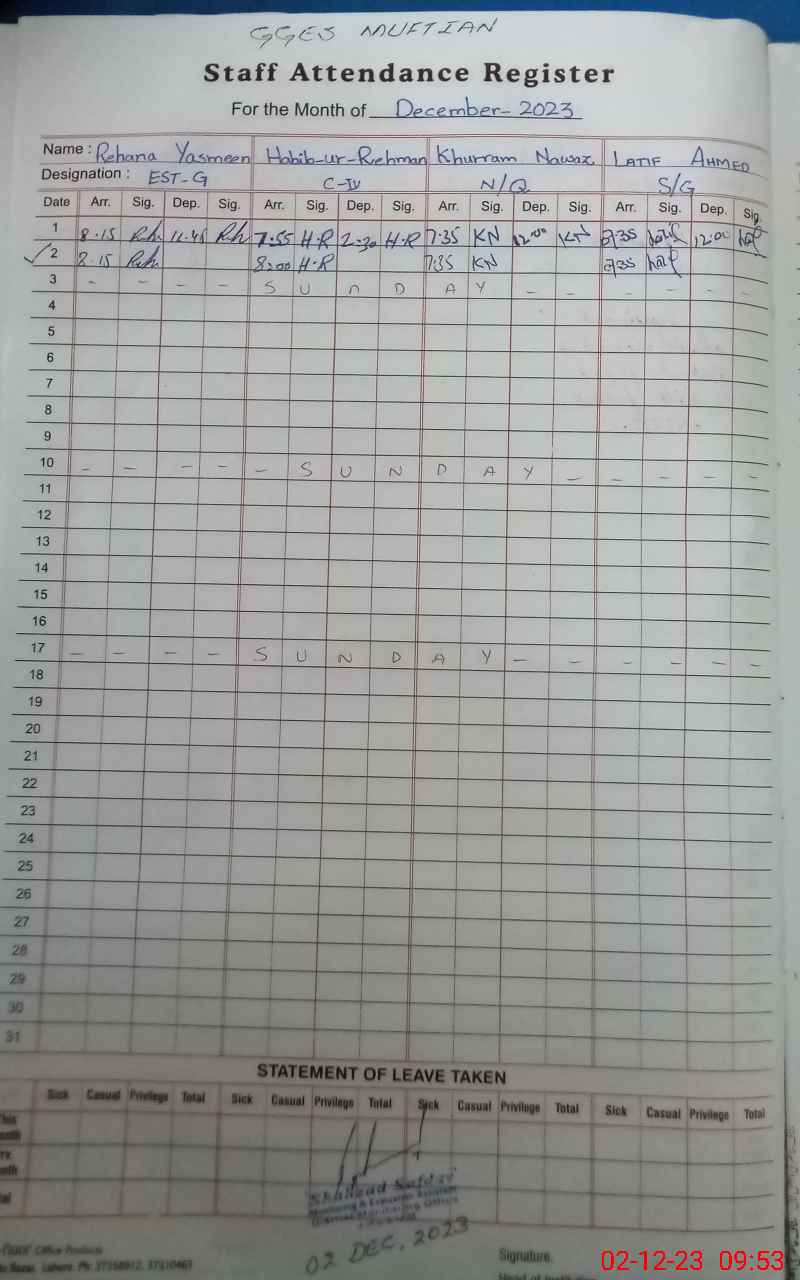 GGES MUFTIAN
Staff Attendance Register
For the Month of December- 2023
Name : Rehana Yasmeen Habib-ur-Rehman Khurram Nawaz LATIF AHMED
Designation : EST-G C-IV N/Q S/G
Date Arr. Sig. Dep. Sig. Arr. Sig. Dep. Sig. Arr. Sig. Dep. Sig. Arr. Sig. Dep. Sig.
1 8.15 Rh 11.45 Rh 7:55 H-R 2:30 H-R 7:35 KN 12:00 KN 7:35 12:00
2 8.15 Rh 8:00 H-R 7:35 KN 7:35
3 - - - - S U n D A Y - - - - - -
4
5
6
7
8
9
10 - - - - - S U N D A Y - - - - -
11
12
13
14
15
16
17 - - - - S U N D A Y - - - - - -
18
19
20
21
22
23
24
25
26
27
28
29
30
31
STATEMENT OF LEAVE TAKEN
Sick Casual Privilege Total Sick Casual Privilege Total Sick Casual Privilege Total Sick Casual Privilege Total
Office Products
02 DEC, 2023
Lahore. Ph: 37358912, 37310463
Signature.
02-12-23 09:53